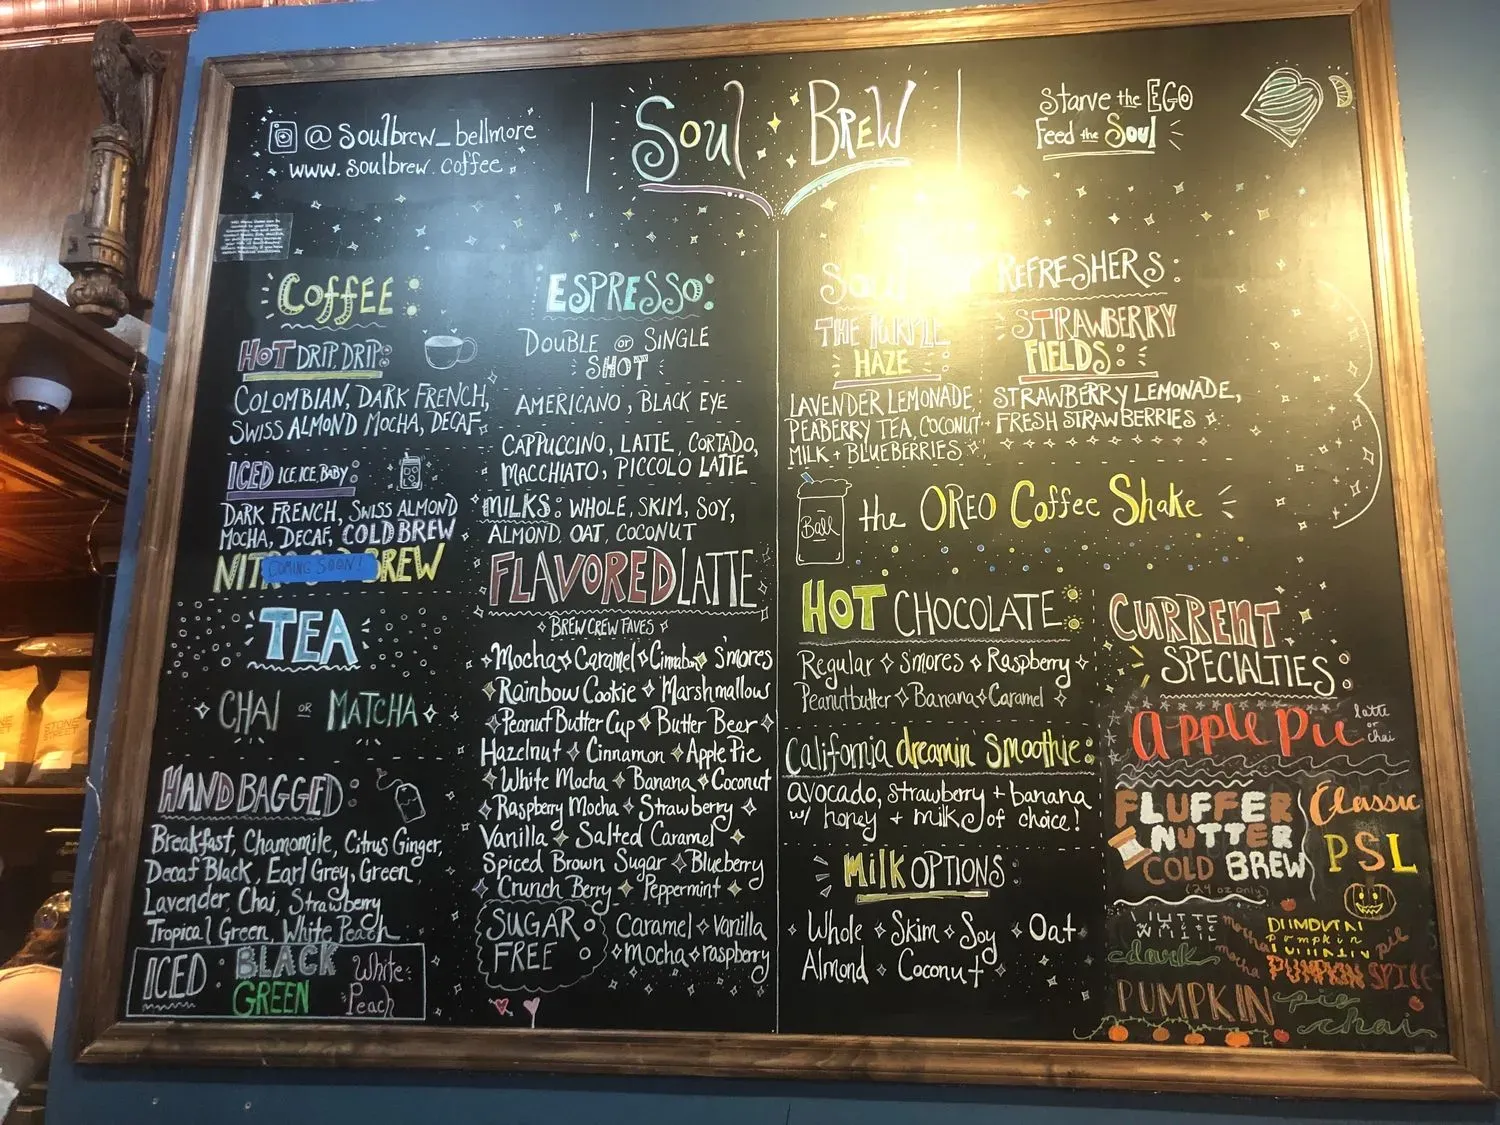 @ Soulbrew_bellmore
www.soulbrew.coffee
Soul BREW
Starve the EGO
Feed the Soul
COFFEE:
HOT DRIP, DRIP:
COLOMBIAN, DARK FRENCH,
SWISS ALMOND MOCHA, DECAF
ICED ICE, ICE, BABY:
DARK FRENCH, SWISS ALMOND
MOCHA, DECAF, COLD BREW
BREW
COMING SOON!
TEA
CHAI OR MATCHA
HAND BAGGED:
Breakfast, Chamomile, Citrus Ginger,
Decaf Black, Earl Grey, Green
Lavender, Chai, Strawberry
Tropical Green, White Peach
ICED: BLACK
GREEN
White
Peach
ESPRESSO:
DOUBLE or SINGLE
SHOT
AMERICANO, BLACK EYE
CAPPUCCINO, LATTE, CORTADO,
MACCHIATO, PICCOLO LATTE
MILKS: WHOLE, SKIM, SOY,
ALMOND, OAT, COCONUT
FLAVORED LATTE
BREW CREW FAVES
Mocha Caramel Cinnabon S'mores
Rainbow Cookie Marshmallow
Peanut Butter Cup Butter Beer
Hazelnut Cinnamon Apple Pie
White Mocha Banana Coconut
Raspberry Mocha Strawberry
Vanilla Salted Caramel
Spiced Brown Sugar Blueberry
Crunch Berry Peppermint
SUGAR FREE
Caramel Vanilla
Mocha raspberry
REFRESHERS:
THE PURPLE
HAZE
LAVENDER LEMONADE,
PEABERRY TEA, COCONUT
MILK + BLUEBERRIES
STRAWBERRY
FIELDS:
STRAWBERRY LEMONADE,
FRESH STRAWBERRIES
Ball
the OREO Coffee Shake
HOT CHOCOLATE:
Regular Smores Raspberry
Peanutbutter Banana Caramel
California dreamin' Smoothie:
avocado, strawberry + banana
w/ honey + milk of choice!
Milk OPTIONS:
Whole Skim Soy Oat
Almond Coconut
CURRENT
SPECIALTIES:
Apple Pie latte
or
chai
FLUFFER
NUTTER
COLD BREW
(24 oz only)
Classic
PSL
PUMPKIN SPICE
PUMPKIN pie
chai